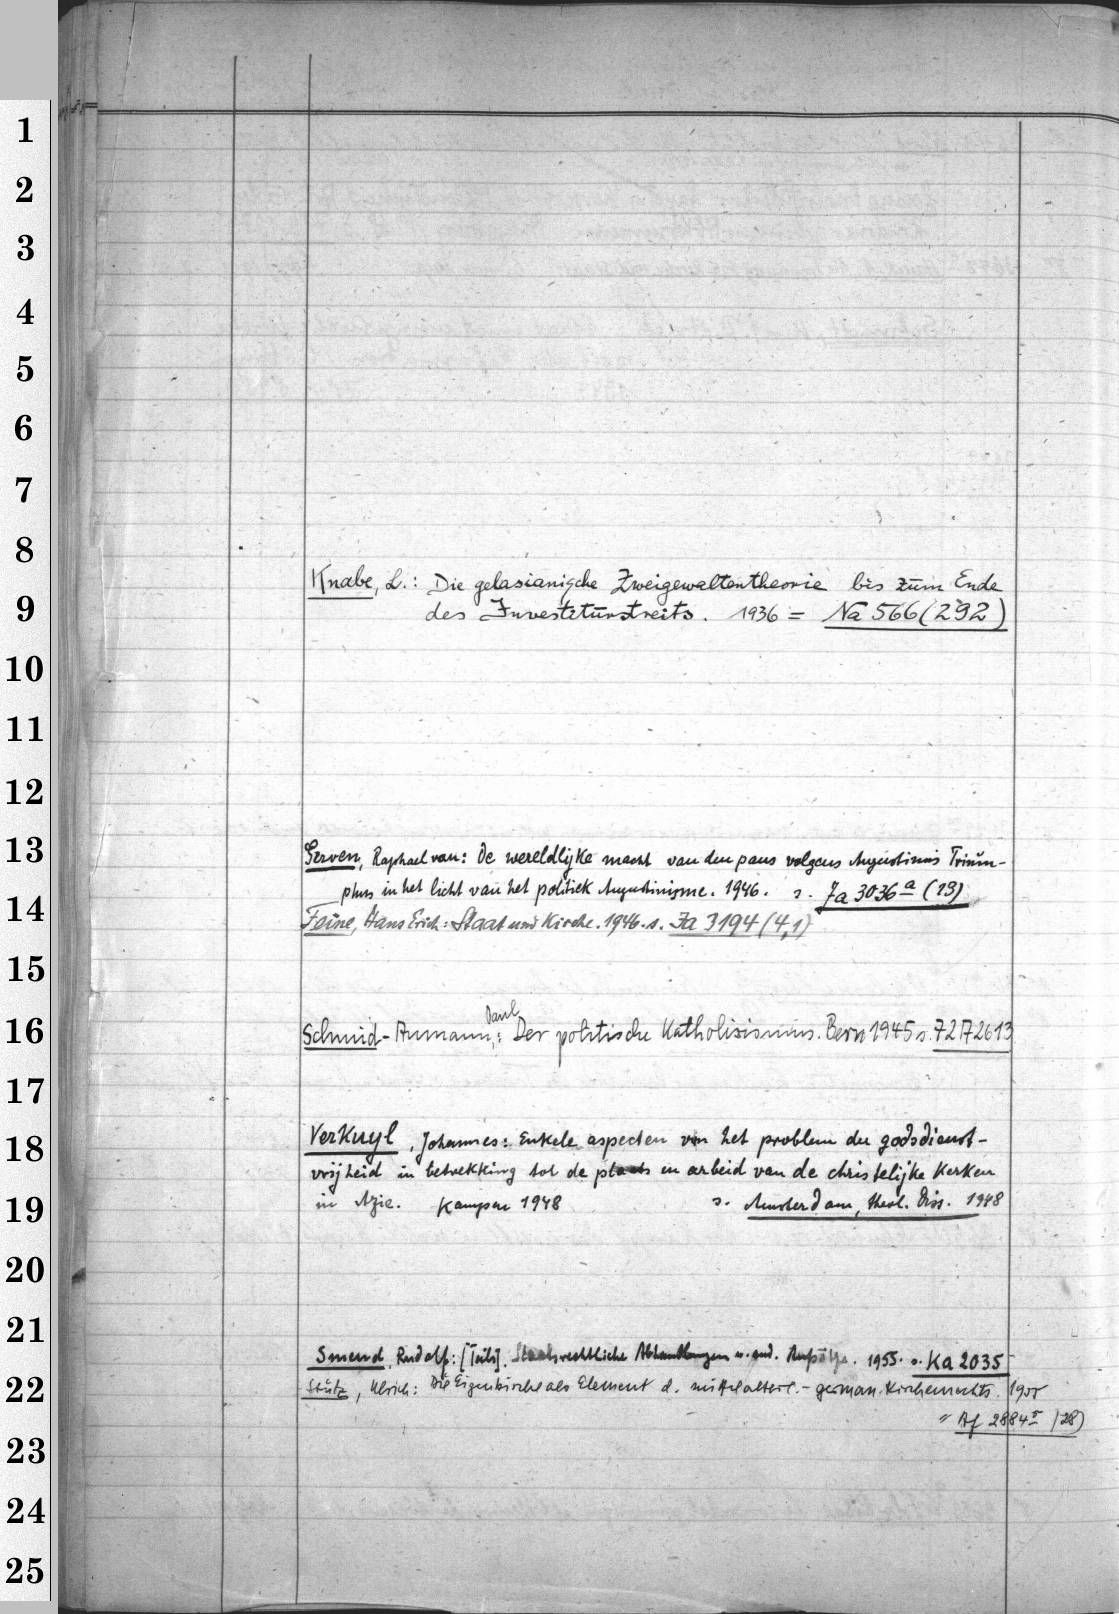 1
2
3
4
5
6
7
8
Knabe, L.: Die gelasianische Zweigewaltentheorie bis zum Ende
9
des Investiturstreits. 1936 = Na 566 (292)
10
11
12
13
Gerven, Raphael van: De wereldlijke macht van den paus volgens Augustinus Trium-
phus in het licht van het politiek Augustinisme. 1946. s. Ja 3036 a (13)
14
Feine, Hans Erich: Staat und Kirche. 1946. s. Ja 3194 (4,1)
15
Paul
16
Schmid-Ammann,: Der politische Katholizismus. Bern 1945 s. 72 A 2613
17
18
Verkuyl, Johannes: Enkele aspecten van het problem der godsdienst-
vrijheid in betrekking tot de plaats en arbeid van de christelijke Kerken
19
in Azie. Kampen 1948 s. Amsterdam, theol. Diss. 1948
20
21
Smend, Rudolf: [Teils]. Staatsrechtliche Abhandlungen u. and. Aufsätze. 1955. s. Ka 2035
22
Stutz, Ulrich: Die Eigenkirche als Element d. mittelalterl.-german. Kirchenrechts. 1955
= Af 2884 r (28)
23
24
25